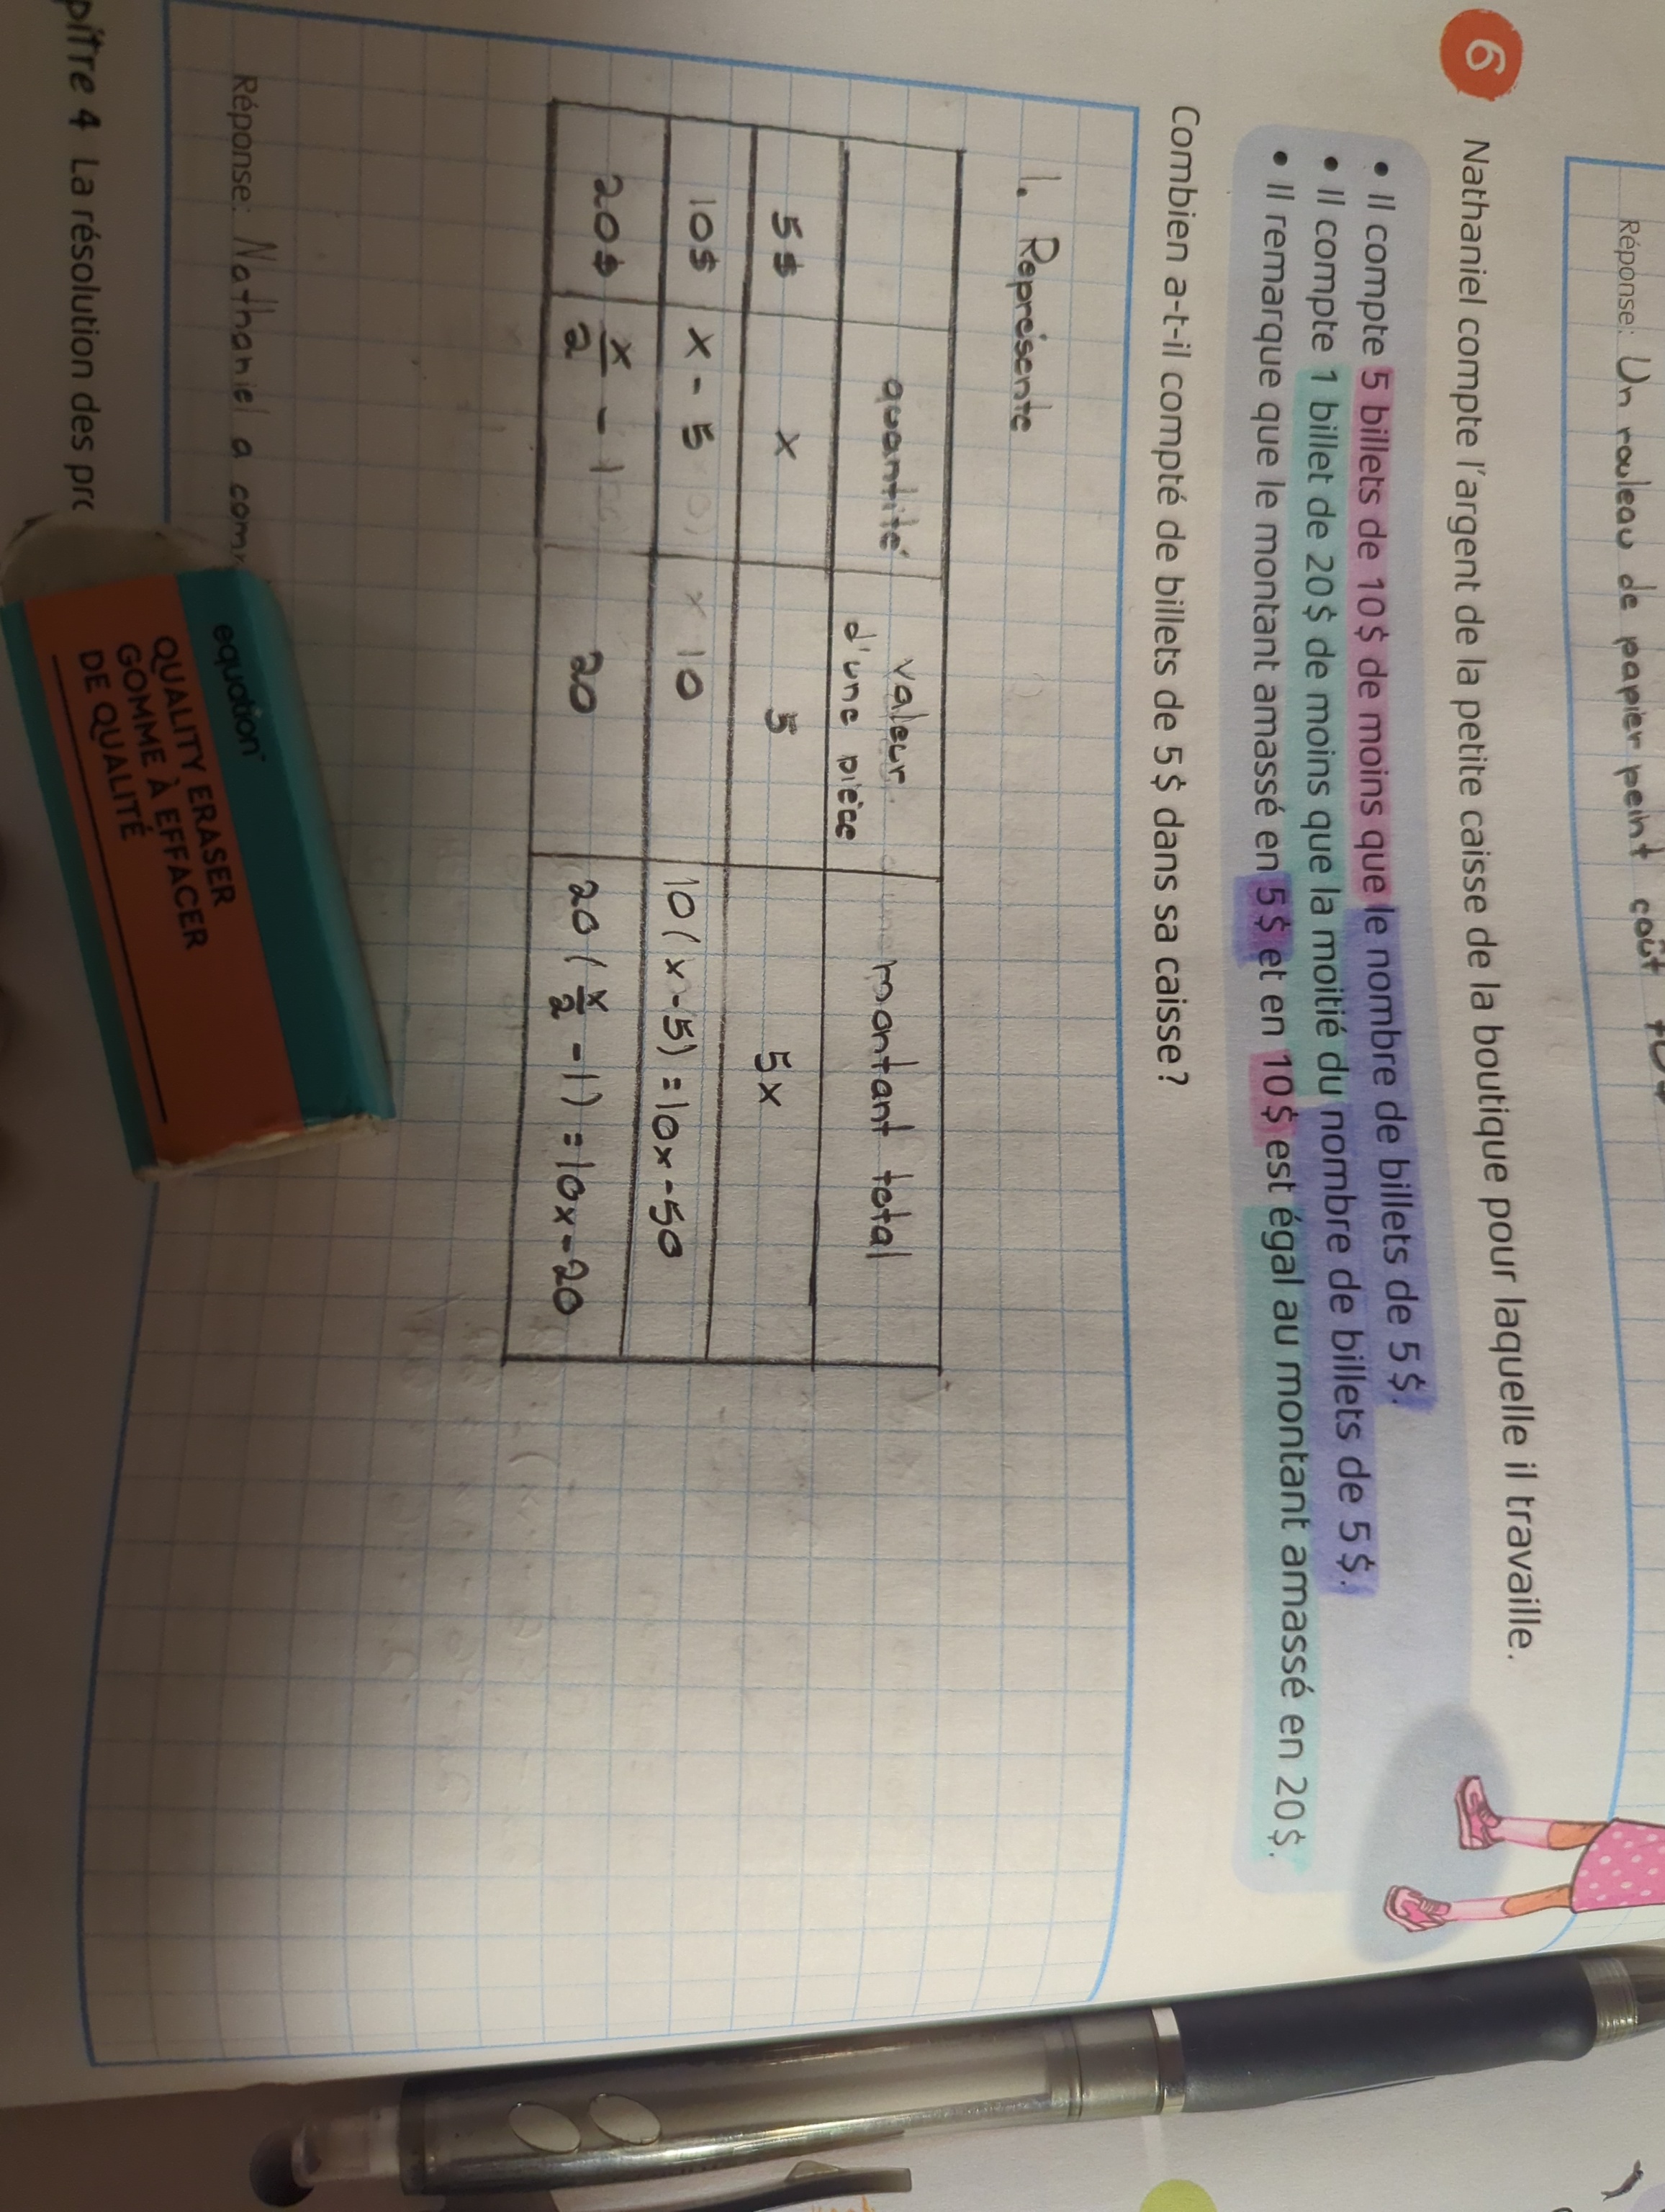 Réponse: Un rouleau de papier peint coût
6 Nathaniel compte l'argent de la petite caisse de la boutique pour laquelle il travaille.
• Il compte 5 billets de 10 $ de moins que le nombre de billets de 5 $.
• Il compte 1 billet de 20 $ de moins que la moitié du nombre de billets de 5 $.
• Il remarque que le montant amassé en 5 $ et en 10 $ est égal au montant amassé en 20 $.
Combien a-t-il compté de billets de 5 $ dans sa caisse ?
1. Représente
quantité valeur d'une pièce montant total
5$ x 5 5x
10$ x - 5 10 10(x-5) = 10x-50
20$ x/2 - 1 20 20(x/2 - 1) = 10x-20
Réponse: Nathaniel a com
equation
QUALITY ERASER
GOMME À EFFACER
DE QUALITÉ
pitre 4 La résolution des pro